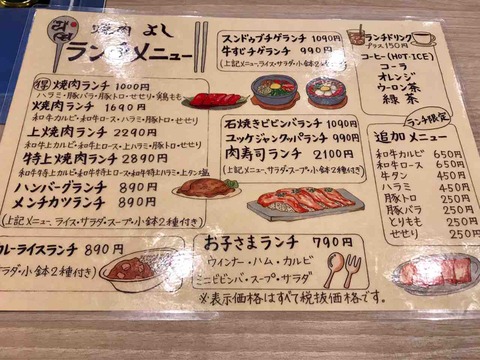 焼肉 よし
ランチメニュー
得 焼肉ランチ 1000円
ハラミ・豚バラ・豚トロ・せせり・鶏もも
焼肉ランチ 1690円
和牛カルビ・和牛ロース・ハラミ・豚トロ・せせり
上焼肉ランチ 2290円
和牛上カルビ・和牛上ロース・上ハラミ・豚トロ・せせり
特上焼肉ランチ 2890円
和牛特上カルビ・和牛特上ロース・和牛特上ハラミ・上タン塩
ハンバーグランチ 890円
メンチカツランチ 890円
(上記メニュー、ライス・サラダ・スープ・小鉢2種付き)
カレーライスランチ 890円
サラダ・小鉢2種付き)
スンドゥブチゲランチ 1090円
牛すじチゲランチ 990円
(上記メニュー、ライス・サラダ・小鉢2種付き)
石焼きビビンバランチ 1090円
ユッケジャンクッパランチ 990円
肉寿司ランチ 2100円
(上記メニュー、サラダ・スープ・小鉢2種付き)
お子さまランチ 790円
ウインナー・ハム・カルビ
ミニビビンバ・スープ・サラダ
※表示価格はすべて税抜価格です。
ランチドリンク
プラス150円
コーヒー(HOT・ICE)
コーラ
オレンジ
ウーロン茶
緑茶
ランチ限定
追加メニュー
和牛カルビ 650円
和牛ロース 650円
牛タン 450円
ハラミ 450円
豚トロ 250円
豚バラ 250円
とりもも 250円
せせり 250円